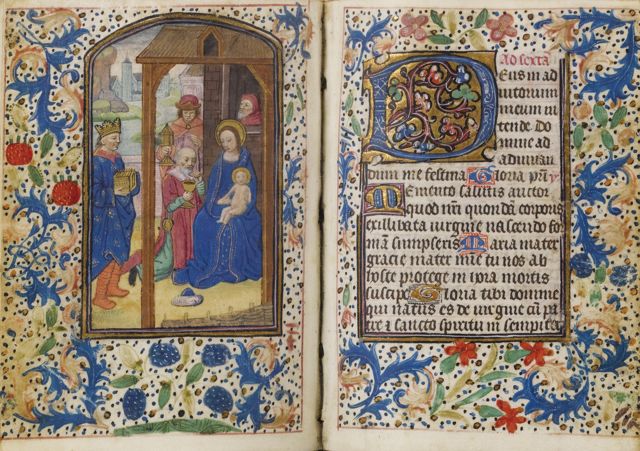 Ad sexta
Deus in ad
iutorium
meum in
tende. do
mine ad
adiuuan
dum me festina. Gloria pr̄i
Memento salutis auctor
quod nr̄i quondā corporis
ex illibata uirgine nascendo for
mā sumpseris Maria mater
gracie mater mīe tu nos ab
hoste protege in hora mortis
suscipe Gloria tibi domine
qui natus es de uirgine cū pa
tre et sancto spiritu in sempiter